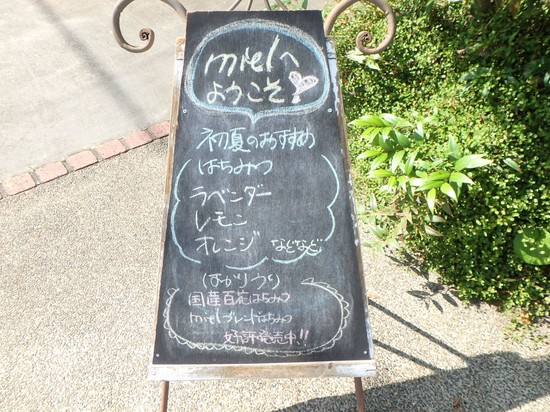 mielへ
ようこそ!
初夏のおすすめ
はちみつ
ラベンダー
レモン
オレンジ などなど
はかりうり
国産百花はちみつ
mielブレンドはちみつ
好評発売中!!